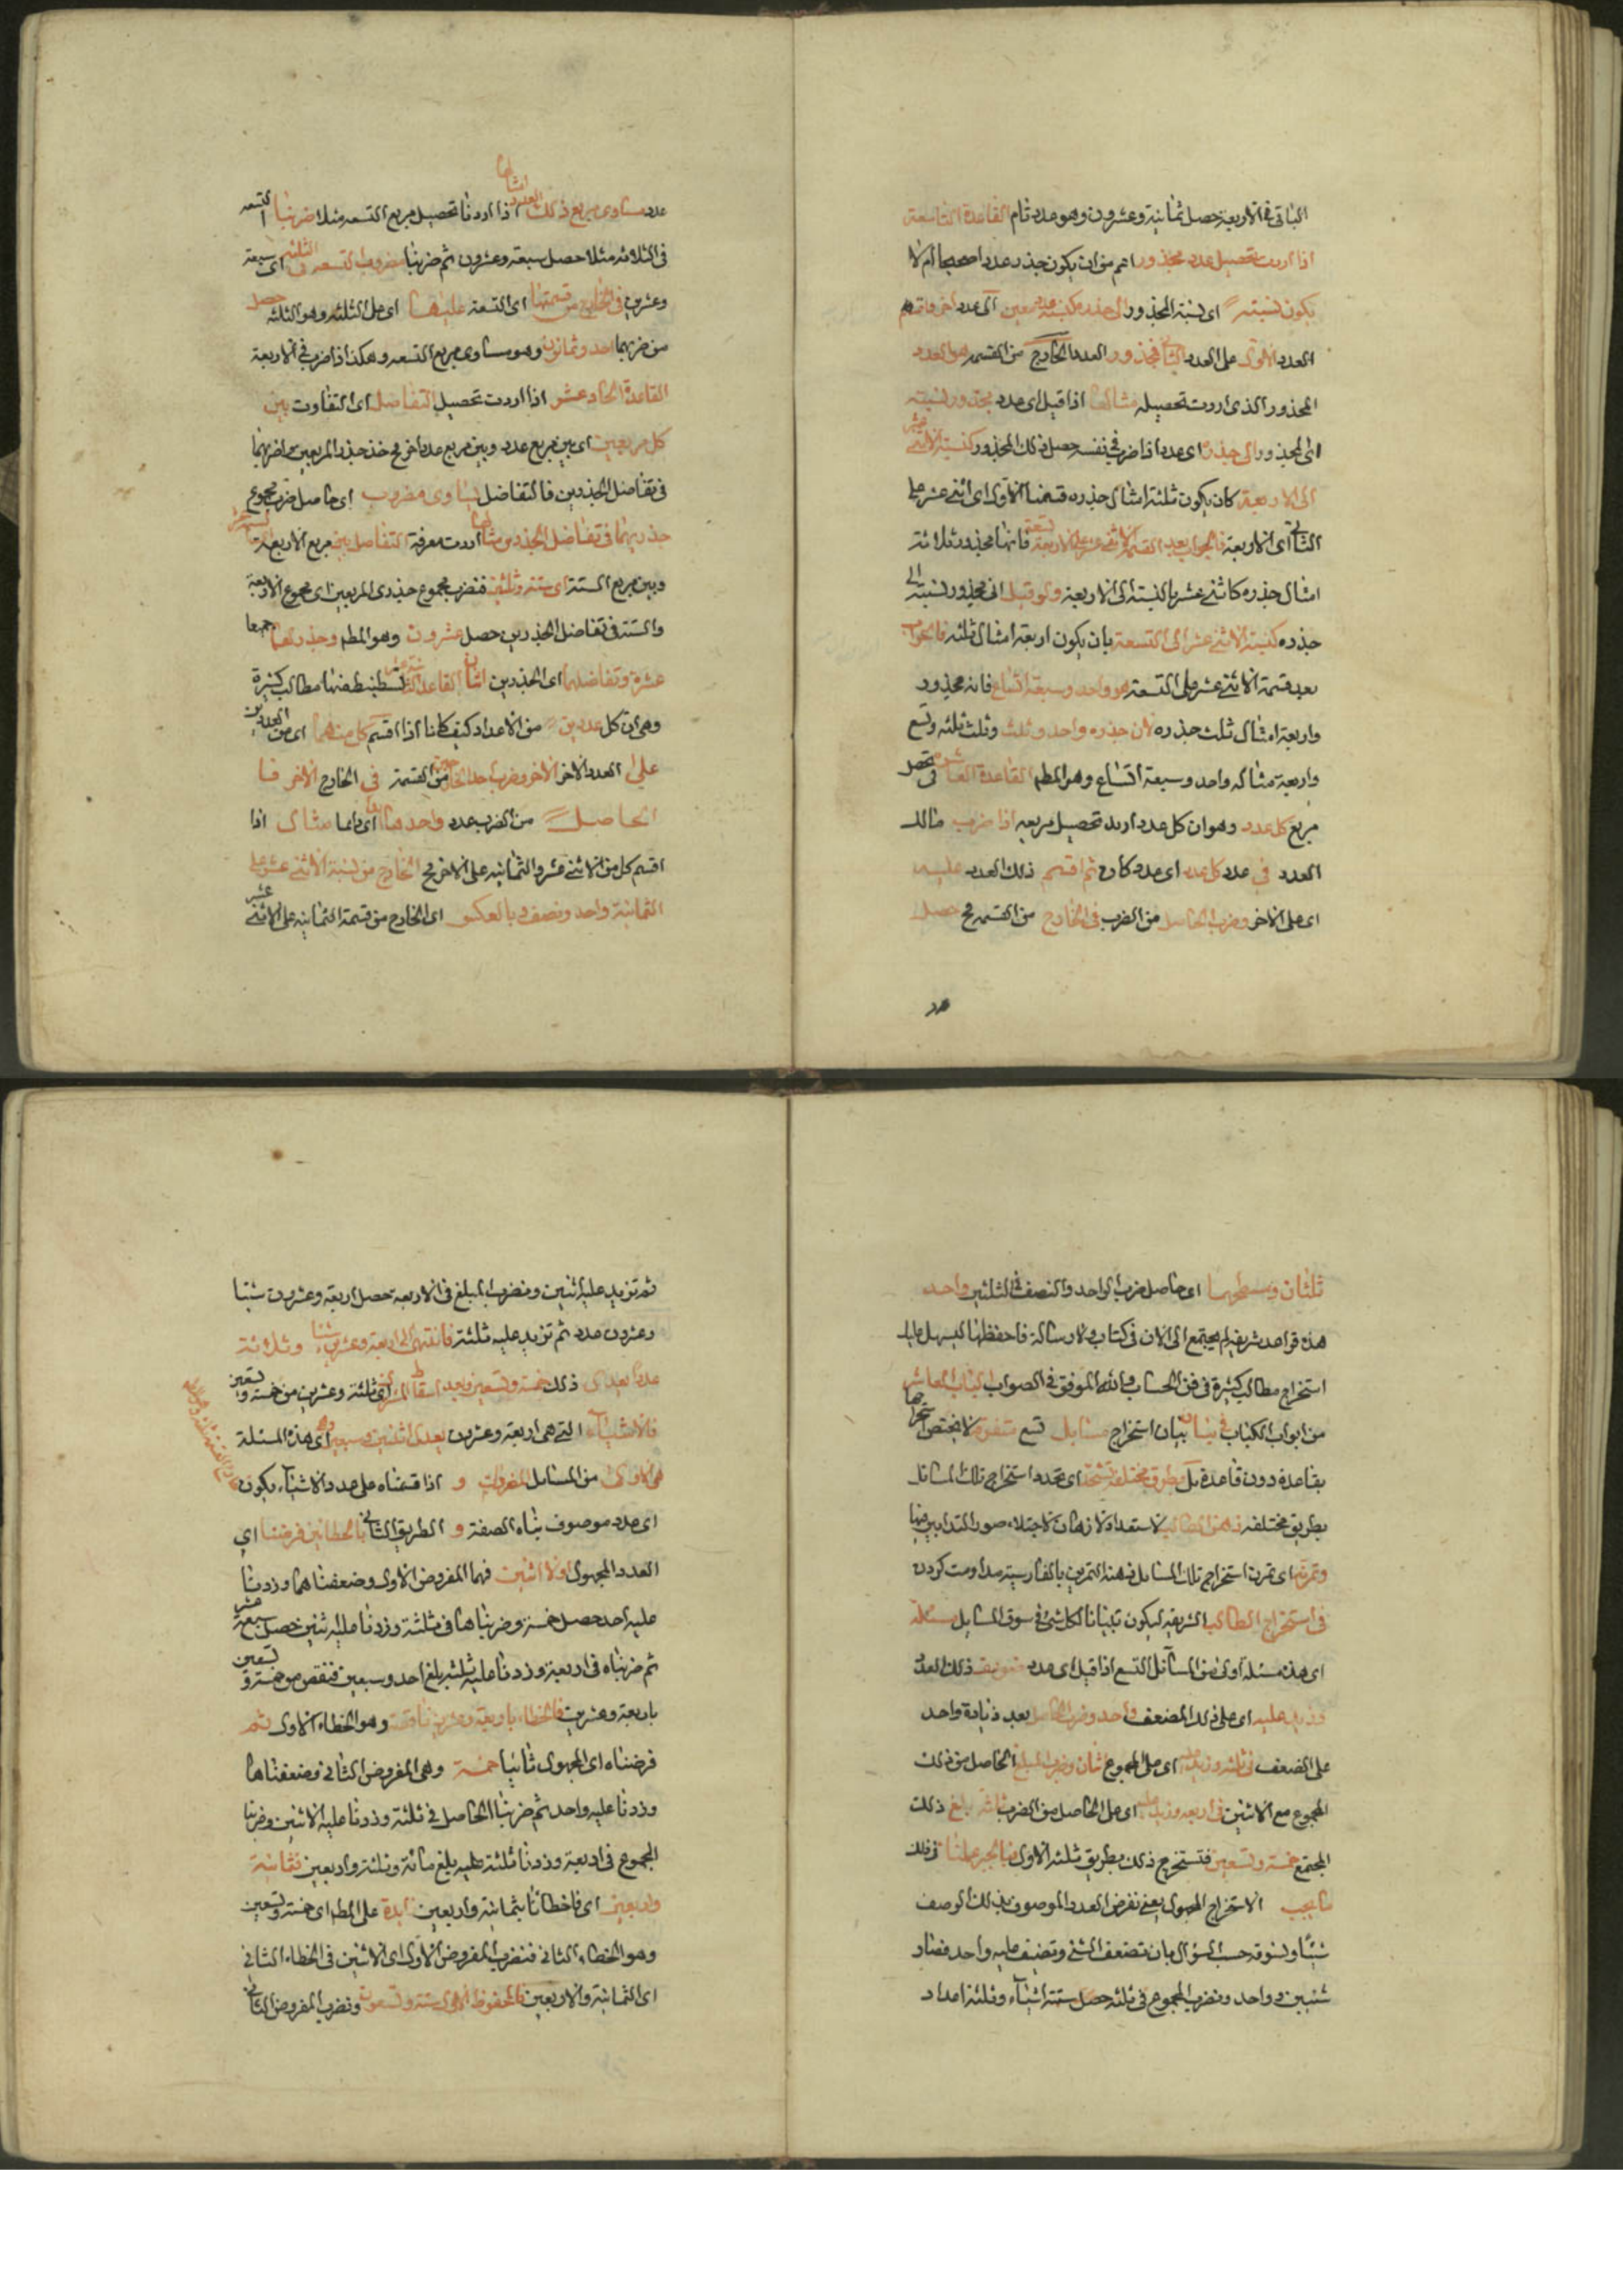 الباقى فى الاربعة حصل ثمانية وعشرون وهو عدد تام القاعدة التاسعة
اذا اردت تحصيل عدد مجذور اعم من ان يكون جذره عددا صحيحا ام لا
يكون نسبته اى نسبة المجذور الى جذره كنسبة عدد معين الى عدد اخر فاقسم
العدد الاول على العدد الثانى فمجذور العدد الخارج من القسمة هو العدد
المجذور الذى اردت تحصيله مثاله اذا قيل اى عدد مجذور نسبته
اى المجذور الى جذره اى عدد اذا ضرب فى نفسه حصل ذلك المجذور كنسبة الاثنى عشر
الى الاربعة كان يكون ثلثة امثال جذره قسمنا الاول اى اثنى عشر على
الثانى اى الاربعة فالجواب بعد القسمة الاثنى عشر على الاربعة تسعة فانها مجذور ثلاثة
امثال جذره كاثنى عشر بالنسبة الى الاربعة ولو قيل اى مجذور نسبته الى
جذره كنسبة الاثنى عشر الى التسعة بان يكون اربعة امثال ثلثه فالجواب
بعد قسمة الاثنى عشر على التسعة هو واحد وسبعة اتساع فانه مجذور
واربعة امثال ثلث جذره لان جذره واحد وثلث وثلث ثلثه وتسع
واربعة مثاله واحد وسبعة اتساع وهو المطم القاعدة العاشرة فى تحصيل
مربع كل عدد وهو ان كل عدد اريد تحصيل مربعه اذا ضرب ذالك
العدد فى عدد كل عدد اى عدد كان ثم اقسم ذلك العدد عليه
اى على الاخر وضرب الحاصل من الضرب فى الخارج من القسمة مح حصل
عدد
عدد مساوى مربع ذلك العدد مثالها اذا اردنا تحصيل مربع التسعه مثلا ضربنا التسعه
فى الثلاثه مثلا حصل سبعة وعشرون ثم ضربنا مضروب التسعه فى الثلثه اى سبعة
وعشرين فى الخارج من قسمتها اى التسعة عليها اى على الثلثه وهو الثلثه حصل
من ضربهما احد وثمانون وهو مساوى مربع التسعه وهكذا اذا ضرب فى الاربعة
القاعدة الحاد عشر اذا اردت تحصيل التفاضل اى التفاوت بين
كل مربعين اى بين مربع عدد وبين مربع عدد اخر مح خذ جذر المربعين واضربهما
فى تفاضل الجذرين فالتفاضل يساوى مضروب اى حاصل ضرب مجموع
جذريهما فى تفاضل الجذرين مثالها اردت معرفة التفاضل بين مربع الاربعة
وبين مربع الستة اى ستة وثلثين فنضرب مجموع جذرى المربعين اى مجموع الاربعة
والستة فى تفاضل الجذرين حصل عشرون وهو المطم وجذراهما جمعا
عشرة وتفاضلهما اى الجذرين اثنان القاعدة الثانية عشر تستنبط منها مطالب كثيرة
وهى ان كل عددين من الاعداد كيف كانا اذا اقسم كل منهما اى من العددين
على العدد الاخر الاخر وضرب احد الخارجين من القسمة فى الخارج الاخر فا
الحاصل من الضرب عدد واحد هنا اى دائما مثال اذا
اقسم كل من الاثنى عشر والثمانيه على الاخر مح الخارج من نسبة الاثنى عشر على
الثمانية واحد ونصف وبالعكس اى الخارج من قسمة الثمانيه على الاثنى عشر
ثلثان ومسطحهما اى حاصل ضرب الواحد والنصف فى الثلثين واحد
هذه قواعد شريفه لم يجتمع الى الان فى كتاب ولا رسالة فاحفظها ليسهل عليك
استخراج مطالب كثيرة فى فن الحساب والله الموفق فى الصواب الباب العاشر
من ابواب الكتاب فى بيان استخراج مسايل تسع متفرقة لا يختص استخراجها
بقاعدة دون قاعدة بل بطرق مختلفة تشحذ اى تحدد استخراج تلك المسائل
بطريق مختلفه ذهن الطالب لاستعداد الاذهان لاجتلاء صور التدابير فيها
وتمرنه اى تمرن استخراج تلك المسايل ذهنه التمرين بالفارسية مداومت كردن
فى استخراج المطالب الشريفه ليكون تبيانا لكل شئ فى سوق المسايل مسئلة
اى هذه مسئلة اولى من المسائل التسع اذا قيل اى عدد ضوعف ذلك العدد
وزيد عليه اى على ذلك المضعف واحد وضرب الحاصل بعد زيادة واحد
على الضعف فى ثلثه وزيد عليه اى على المجموع اثنان وضرب المبلغ الحاصل من ذلك
المجموع مع الاثنين فى اربعه وزيد عليه اى على الحاصل من الضرب ثلثة بلغ ذلك
المجتمع خمسة وتسعين فنستخرج ذلك بطريق ثلثه الاول فبالجبر عملنا فى ذلك
ما يجب الاستخراج المجهول يعنى نفرض العدد الموصوف بذلك الوصف
شيئا ونسوقه حسب السؤال بان نضعف الشئ ونضيف عليه واحد فصار
شيئين وواحد ونضرب المجموع فى ثلثه حصل ستة اشياء وثلثة اعداد
ثم تزيد عليه اثنين ونضرب المبلغ فى الاربعة حصل اربعة وعشرون شيئا
وعشرون عدد ثم تزيد عليه ثلثة فانتهى الى اربعة وعشرين شيئا وثلاثة
عددا يعدل ذلك خمسة وتسعين وبعد اسقاط المشترك اى ثلثة وعشرين من خمسة وتسعين
فالاشياء التى هى اربعة وعشرون يعدل اثنين وسبعين اى هذه المسئلة
هى الاولى من المسايل المفردات و اذا قسمناه على عدد الاشياء يكون
اى عدد موصوف بهذه الصفة و الطريق الثانى بالخطائين فرضنا اى
العدد المجهول اولا اثنين فهما المفروض الاول وضعفناهما وزدنا
عليه احد حصل خمسة وضربناها فى ثلثة وزدنا عليه اثنين حصل سبعة عشر
ثم ضربناه فى اربعة وزدنا عليه ثلثة بلغ احد وسبعين فنقص من خمسة وتسعين
باربعة وعشرين فالخطاء باربعة وعشرين ناقصة وهو الخطاء الاول ثم
فرضناه اى المجهول ثانيا خمسة وهى المفروض الثانى وضعفناها
وزدنا عليه واحد ثم ضربنا الحاصل فى ثلثة وزدنا عليه الاثنين وضربنا
المجموع فى اربعة وزدنا ثلثة عليه بلغ مائة وثلثة واربعين فثمانية
واربعين اى فاخطانا بثمانية واربعين زايدة على المطم اى خمسة وتسعين
وهو الخطاء الثانى فنضرب المفروض الاول اى الاثنين فى الخطاء الثانى
اى الثمانية والاربعين فالمحفوظ الاول ستة وتسعون ونضرب المفروض الثانى